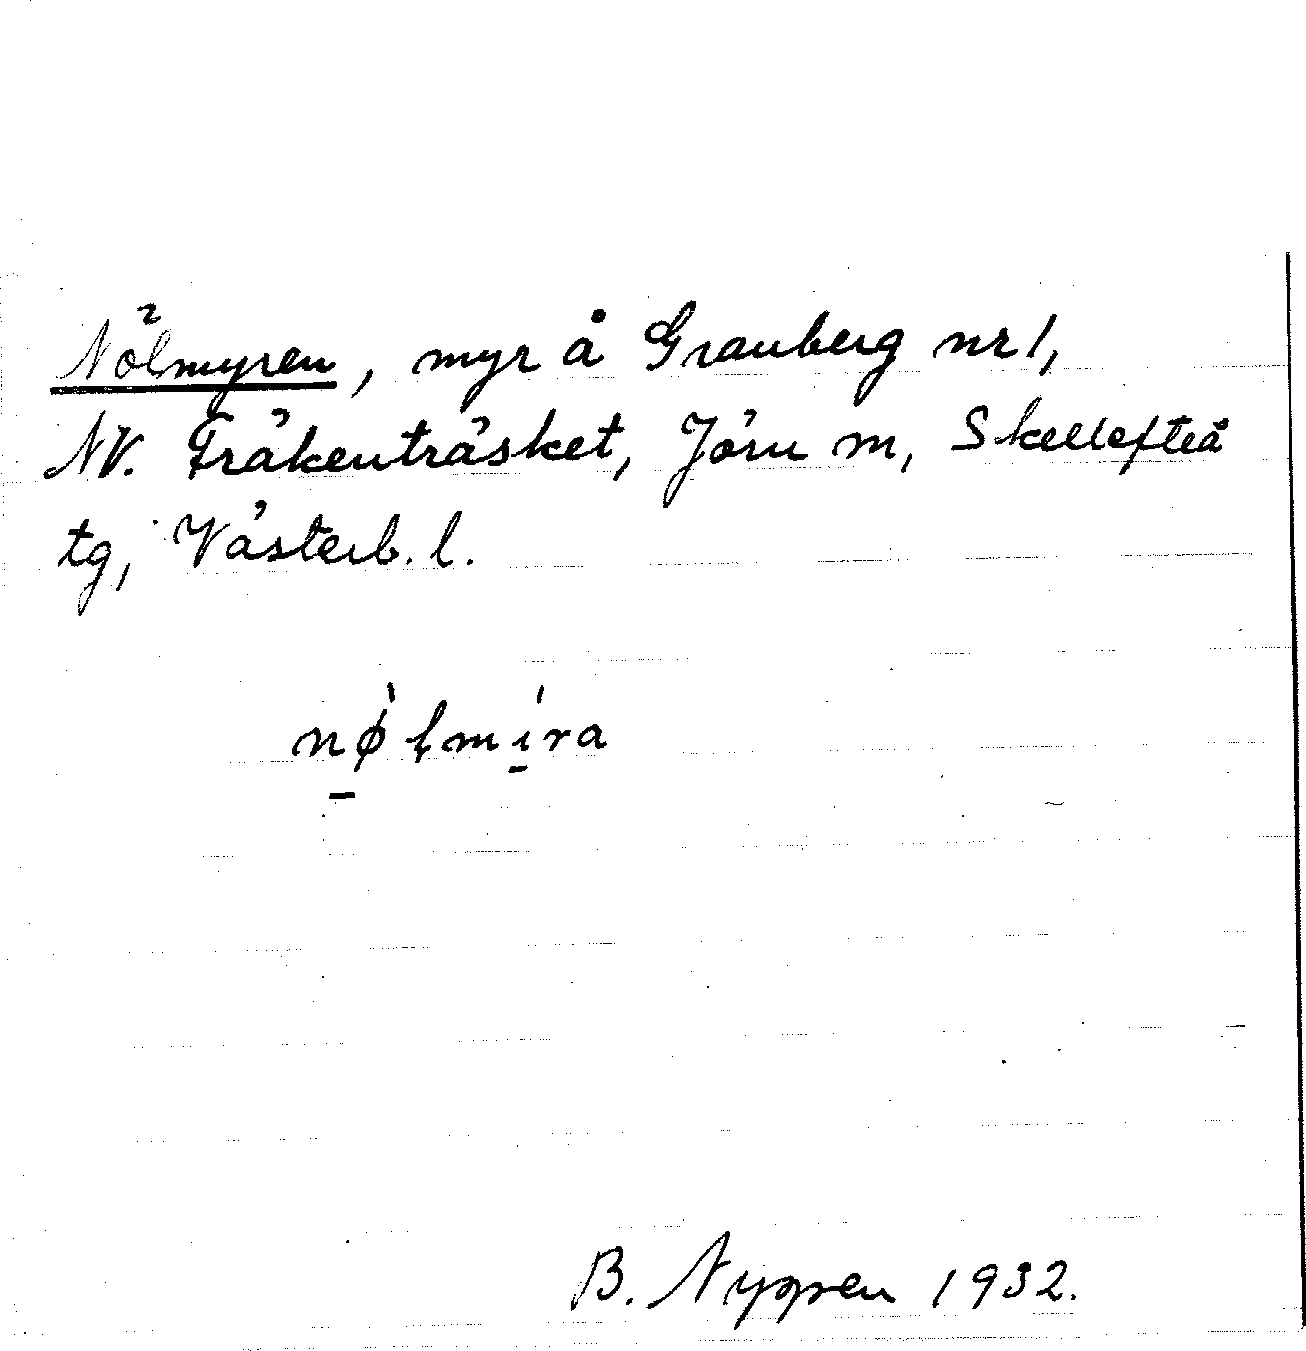 Nölmyren, myr å Granberg nr 1,
NV. Fräkenträsket, Jörn m, Skellefteå
tg, Västerb. l.
nø̠̀ɬmí̠ra
B. Nygren 1932.